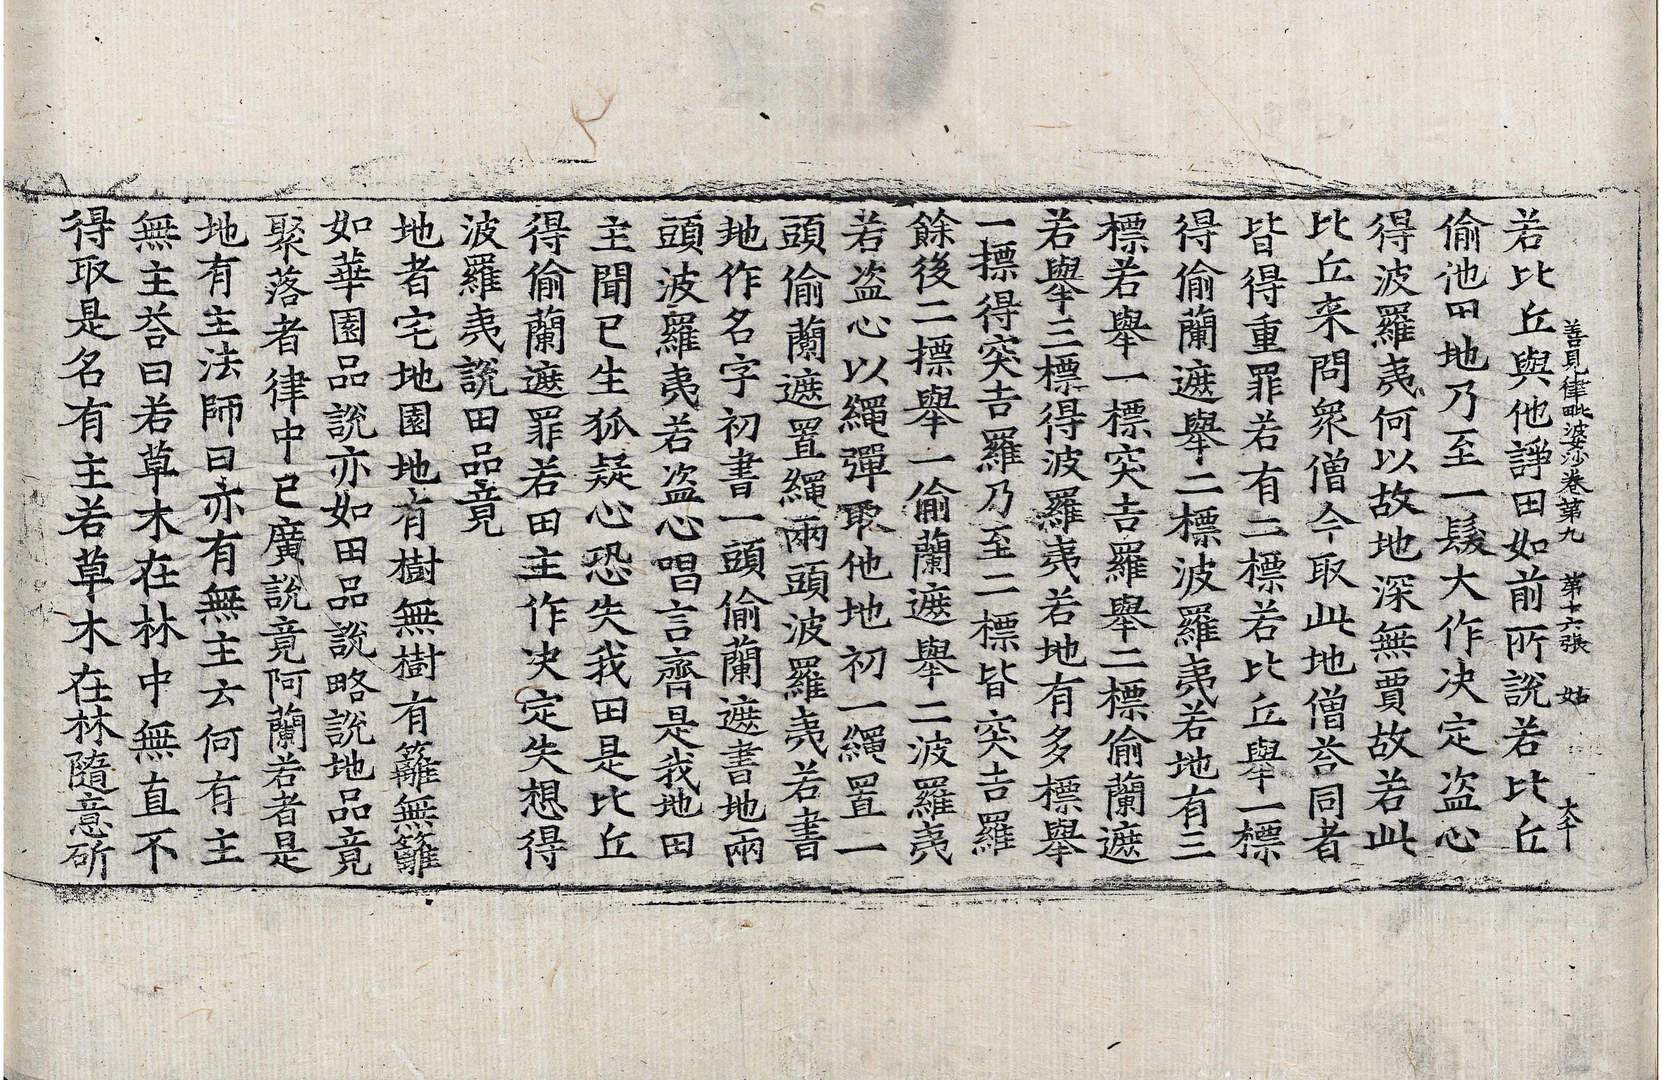 善見律毗婆沙卷第九 第十六張 姑
若比丘與他諍田如前所說若比丘
偷池田地乃至一髮大作决定盜心
得波羅夷何以故地深無賈故若此
比丘来問衆僧今取此地僧荅同者
皆得重罪若有二標若比丘舉一標
得偷蘭遮舉二標波羅夷若地有三
標若舉一標突吉羅舉二標偷蘭遮
若舉三標得波羅夷若地有多標舉
一標得突吉羅乃至二標皆突吉羅
餘後二標舉一偷蘭遮舉二波羅夷
若盜心以繩彈取他地初一繩置一
頭偷蘭遮置繩兩頭波羅夷若書
地作名字初書一頭偷蘭遮書地兩
頭波羅夷若盜心唱言齊是我地田
主聞已生狐疑心恐失我田是比丘
得偷蘭遮罪若田主作决定失想得
波羅夷說田品竟
地者宅地園地有樹無樹有籬無籬
如華園品說亦如田品說略說地品竟
聚落者律中已廣說竟阿蘭若者是
地有主法師曰亦有無主云何有主
無主荅曰若草木在林中無直不
得取是名有主若草木在林隨意斫